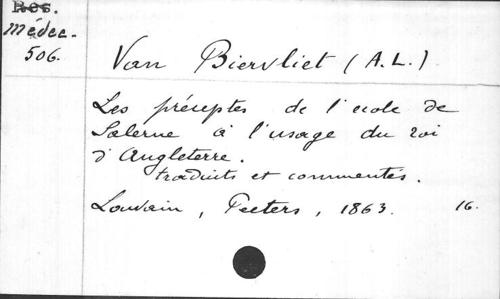 Res.
Médec.
506.
Van Biervliet (A.L.)
Les préceptes de l'école de
Salerne à l'usage du roi
d'Angleterre.
traduits et commentés.
Louvain, Peeters, 1863. 16.